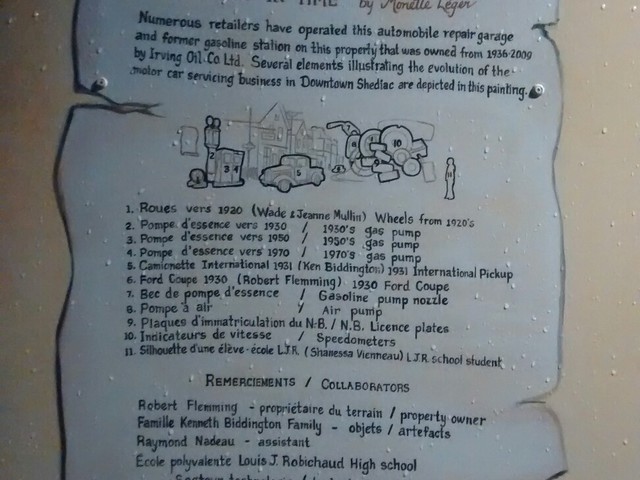 IN TIME by Monette Léger
Numerous retailers have operated this automobile repair garage
and former gasoline station on this property that was owned from 1936-2009
by Irving Oil Co Ltd. Several elements illustrating the evolution of the
motor car servicing business in Downtown Shediac are depicted in this painting.
2 3 4 5 10 9 11
1. Roues vers 1920 (Wade & Jeanne Mullin) Wheels from 1920's
2. Pompe d'essence vers 1930 / 1930's gas pump
3. Pompe d'essence vers 1950 / 1950's gas pump
4. Pompe d'essence vers 1970 / 1970's gas pump
5. Camionette International 1931 (Ken Biddington) 1931 International Pickup
6. Ford Coupe 1930 (Robert Flemming) 1930 Ford Coupe
7. Bec de pompe d'essence / Gasoline pump nozzle
8. Pompe à air / Air pump
9. Plaques d'immatriculation du N.B. / N.B. Licence plates
10. Indicateurs de vitesse / Speedometers
11. Silhouette d'une élève-école L.J.R. (Shanessa Vienneau) L.J.R. school student
REMERCIEMENTS / COLLABORATORS
Robert Flemming - propriétaire du terrain / property owner
Famille Kenneth Biddington Family - objets / artefacts
Raymond Nadeau - assistant
École polyvalente Louis J. Robichaud High school